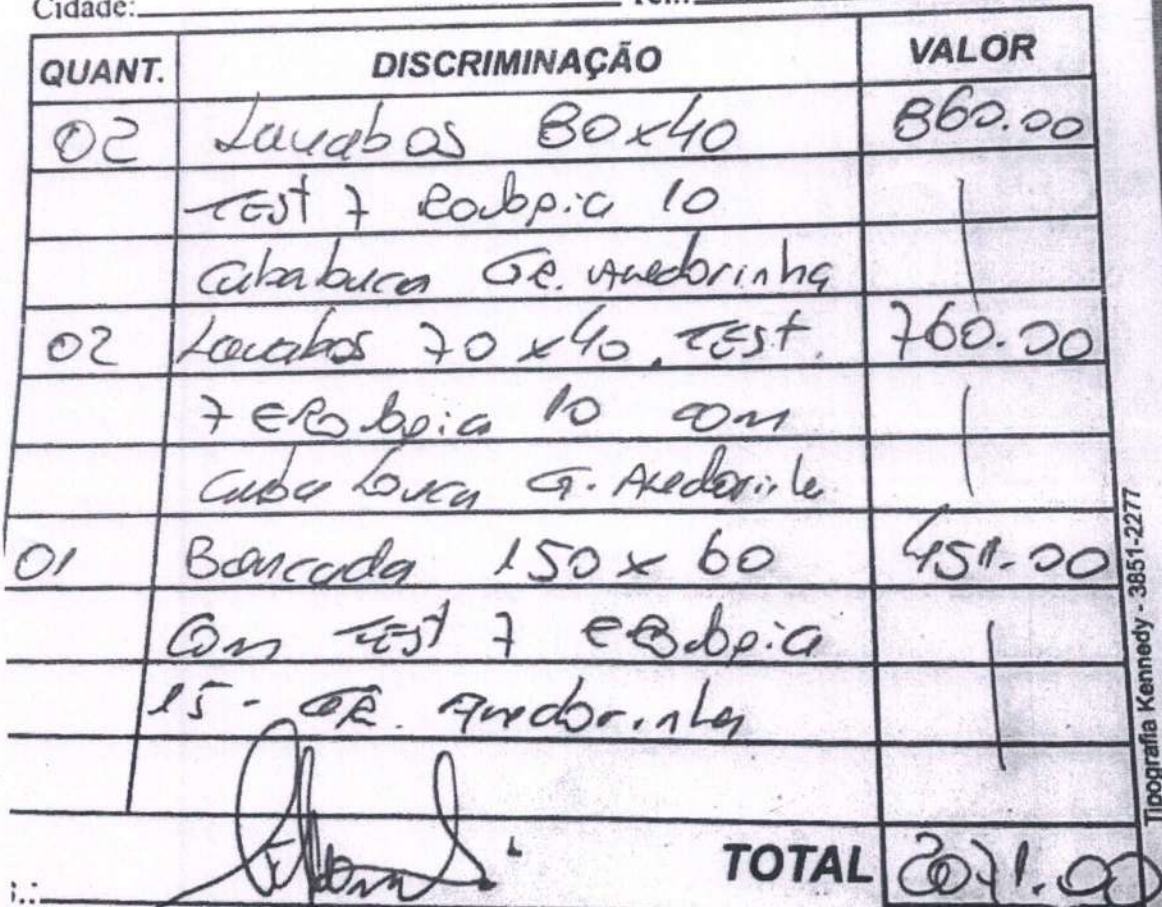 Cidade:
QUANT. DISCRIMINAÇÃO VALOR
02 Lavabos 80x40 860.00
TEST 7 Rodopia 10
Cuba louça Gr. Andorinha
02 Lavabos 70x40. TEST. 760.00
7 E Rodopia 10 com
Cuba Louça G.
01 Bancada 150 x 60 451.00
Com TEST 7 E Rodopia
15 - GR. Andorinha
TOTAL 2071.00
Tipografia Kennedy - 3851-2277